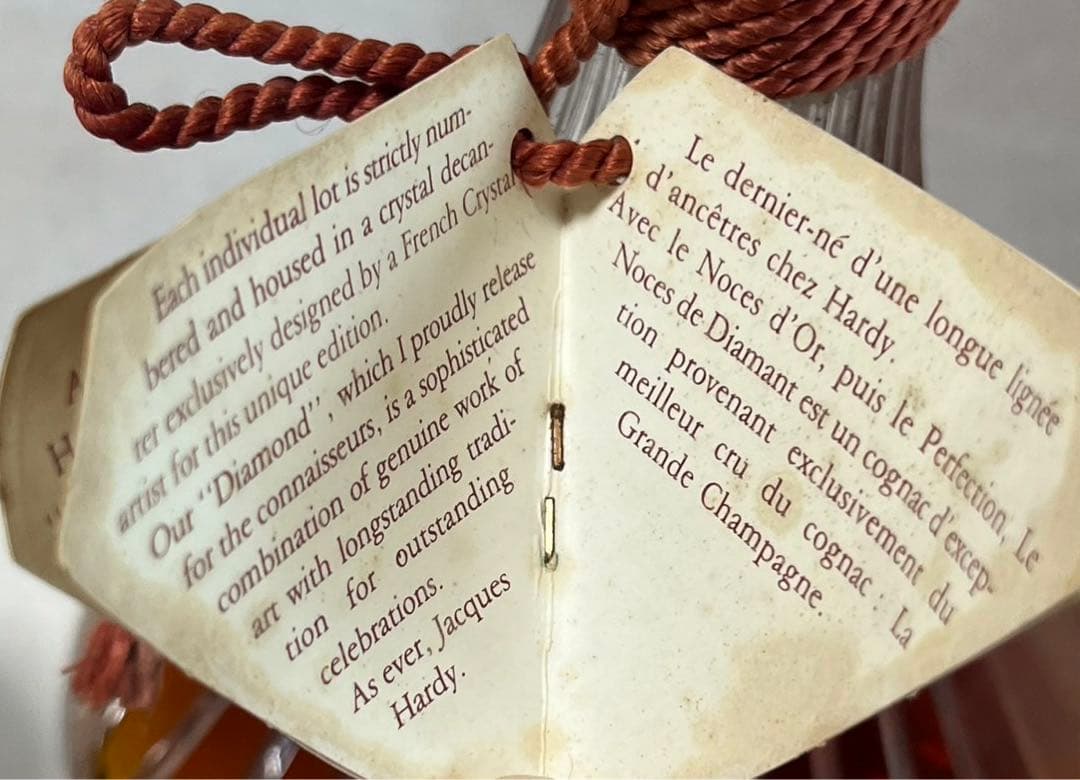 Each individual lot is strictly num-
bered and housed in a crystal decan-
ter exclusively designed by a French Crystal
artist for this unique edition.
Our "Diamond", which I proudly release
for the connaisseurs, is a sophisticated
combination of genuine work of
art with longstanding tradi-
tion for outstanding
celebrations.
As ever, Jacques
Hardy.
Le dernier-né d'une longue lignée
d'ancêtres chez Hardy.
Avec le Noces d'Or, puis le Perfection, Le
Noces de Diamant est un cognac d'excep-
tion provenant exclusivement du
meilleur cru du cognac : La
Grande Champagne.